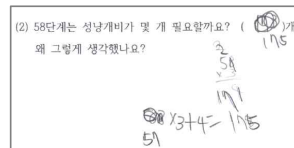 (2) 58단계는 성냥개비가 몇 개 필요할까요? ( )개
175
왜 그렇게 생각했나요?
×3+4=175
57